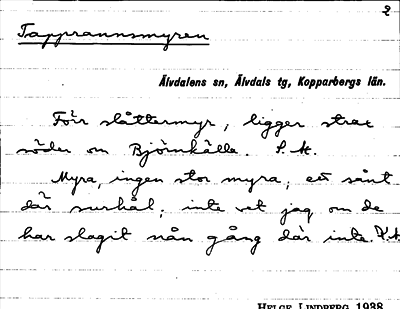 2
Tapprannsmyren
Älvdalens sn, Älvdals tg, Kopparbergs län.
Förr slåttermyr, ligger strax
söder om Björnkälla. S. M.
Myra, ingen stor myra; ett sånt
där surhål; inte vet jag om de
har slagit nån gång där inte.
HELGE LINDBERG 1938